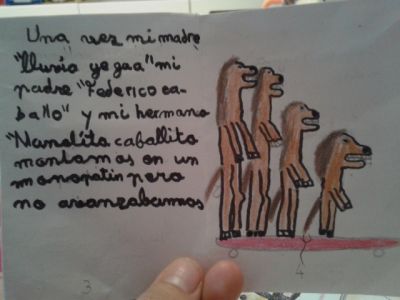 Una vez mi madre
"lluvia yegua" mi
padre "Federico ca-
ballo" y mi hermano
"Manolito caballito
montamos en un
monopatín pero
no avanzabamos
3
4